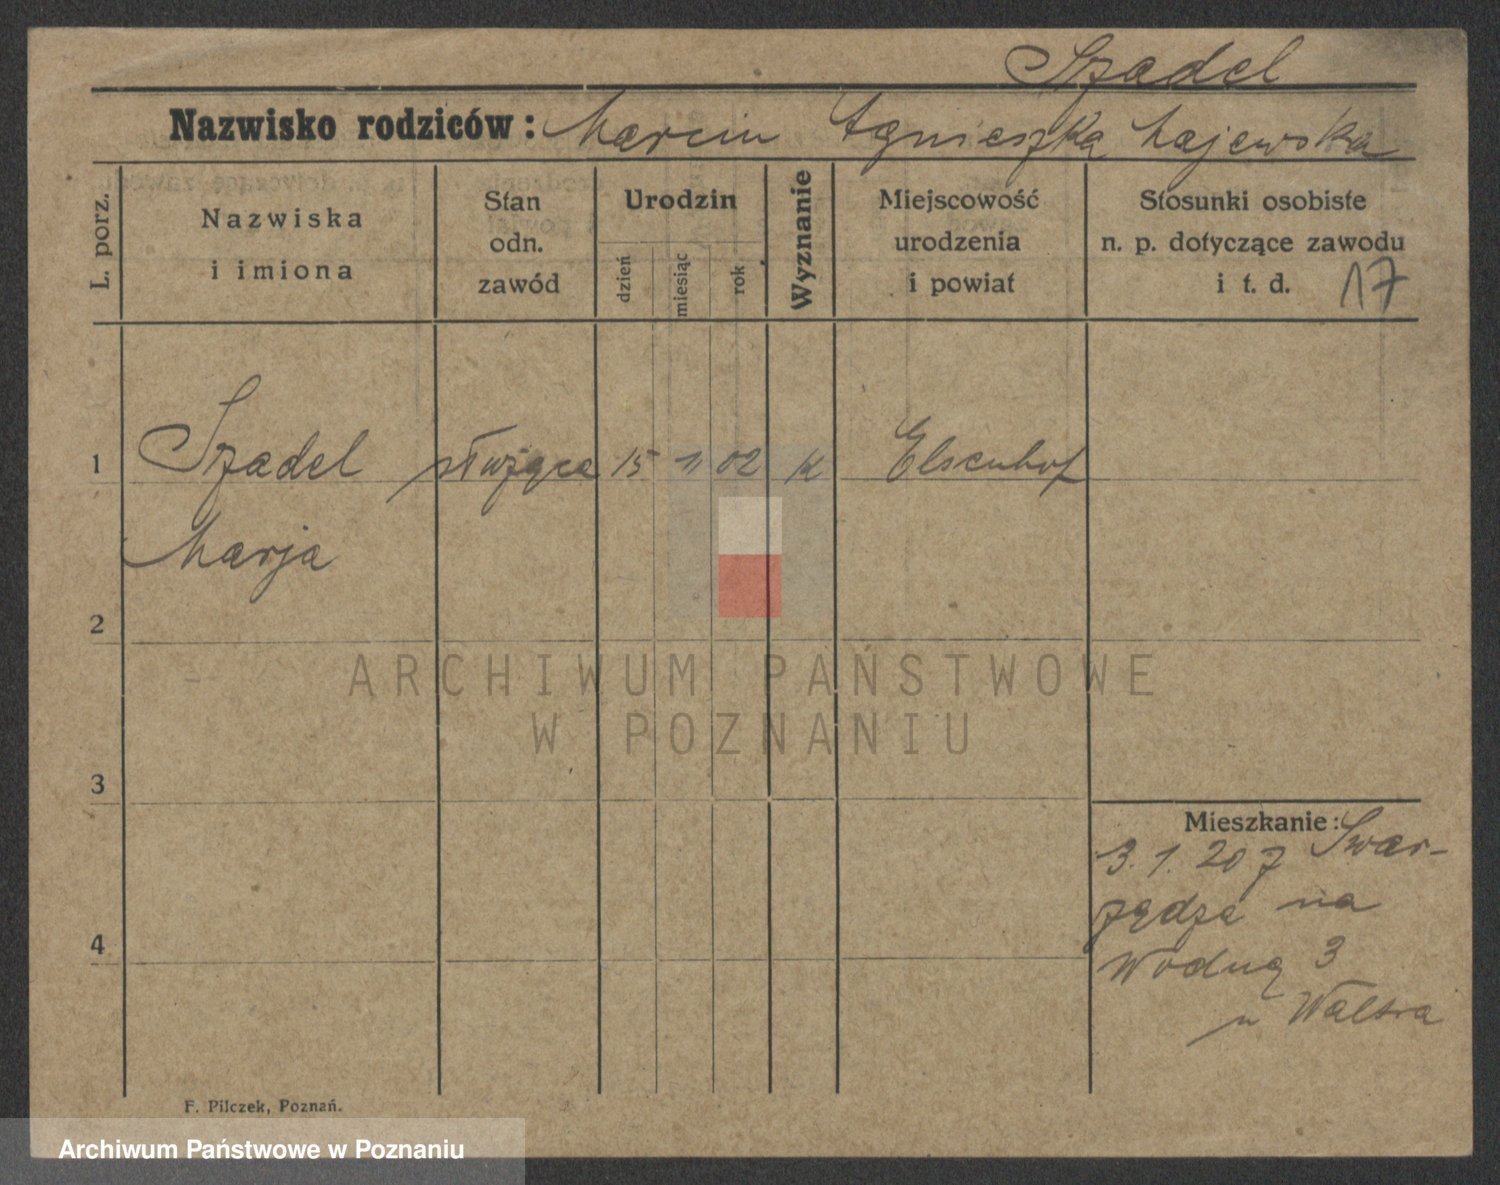 Szadel
Nazwisko rodziców: Marcin Agnieszka Majewska
L. porz.
Nazwiska
i imiona
Stan
odn.
zawód
Urodzin
dzień
miesiąc
rok
Wyznanie
Miejscowość
urodzenia
i powiat
Stosunki osobiste
n. p. dotyczące zawodu
i t. d. 17
1 Szadel służąca 15 11 02 k Elsenhof
Marja
2
ARCHIWUM PAŃSTWOWE
W POZNANIU
3
Mieszkanie: Swar-
3. 1. 20 z
zędza na
Wodną 3
u
4
F. Pilczek, Poznań.
Archiwum Państwowe w Poznaniu